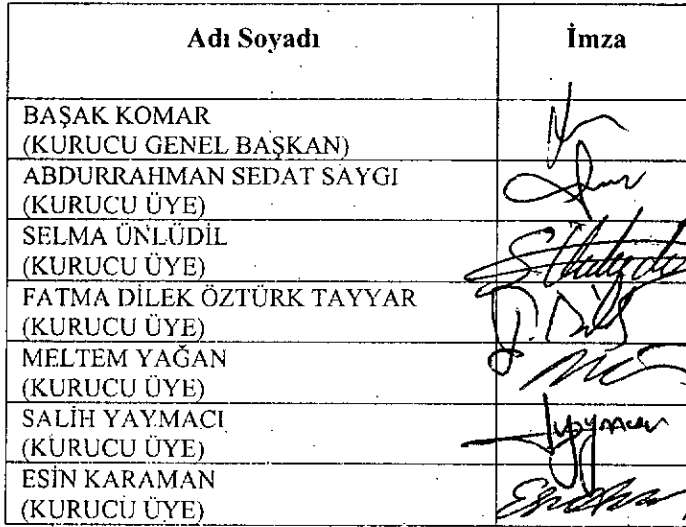 Adı Soyadı İmza
BAŞAK KOMAR
(KURUCU GENEL BAŞKAN)
ABDURRAHMAN SEDAT SAYGI
(KURUCU ÜYE)
SELMA ÜNLÜDİL
(KURUCU ÜYE)
FATMA DİLEK ÖZTÜRK TAYYAR
(KURUCU ÜYE)
MELTEM YAĞAN
(KURUCU ÜYE)
SALİH YAYMACI
(KURUCU ÜYE)
ESİN KARAMAN
(KURUCU ÜYE)